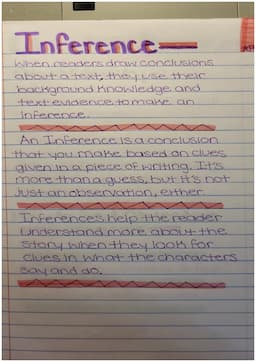 Inference
When readers draw conclusions
about a text, they use their
background knowledge and
text evidence to make an
inference.
An Inference is a conclusion
that you make based on clues
given in a piece of writing. It's
more than a guess, but it's not
just an observation, either.
Inferences help the reader
understand more about the
story when they look for
clues in what the characters
say and do.